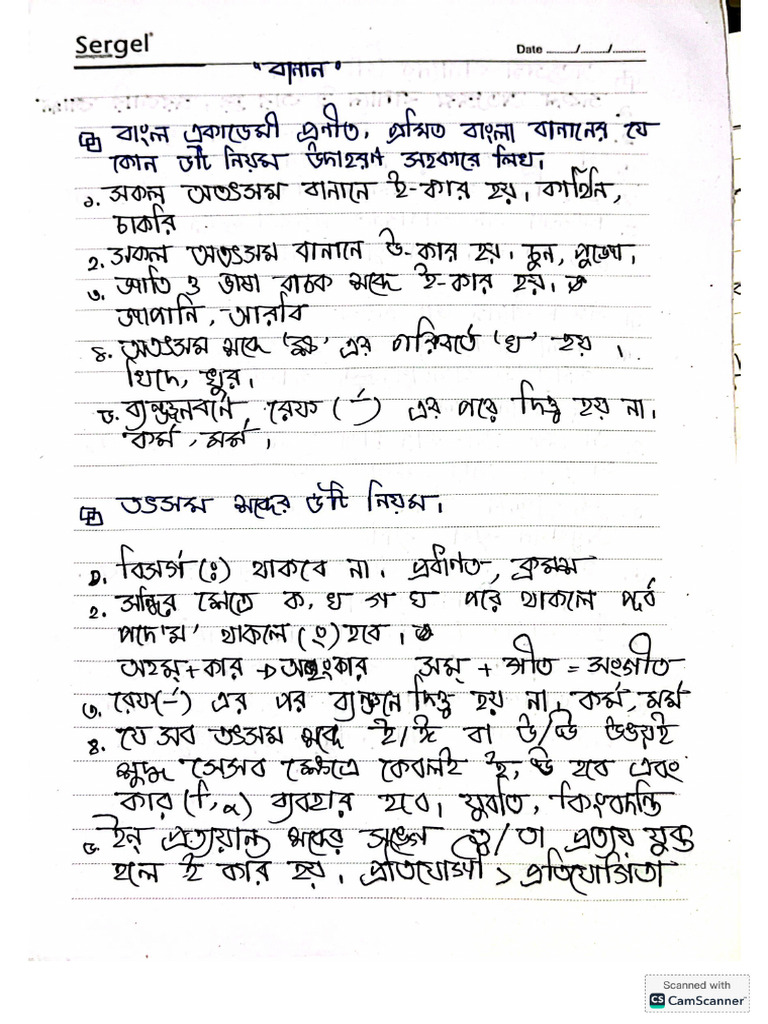 Sergel
Date ......./......./.........
"বানান"
বাংলা একাডেমী প্রনীত, প্রমিত বাংলা বানানের যে
কোন ৫টি নিয়ম উদাহরণ সহকারে লিখ।
১. সকল অতৎসম বানানে ই-কার হয়। কাহিনি,
চাকরি
২. সকল অতৎসম বানানে উ-কার হয়। চুন, পুজো,
৩. জাতি ও ভাষা বাচক শব্দে ই-কার হয়।
জাপানি, আরবি
৪. অতৎসম শব্দে 'ক্ষ' এর পরিবর্তে 'খ' হয়।
খিদে, খুর।
৫. ব্যঞ্জনবর্ণে রেফ (র্) এর পরে দ্বিত্ব হয় না।
কর্ম, মর্ম।
তৎসম শব্দের ৫টি নিয়ম।
১. বিসর্গ (ঃ) থাকবে না। প্রধানত, ক্রমশ
২. সন্ধির ক্ষেত্রে ক, খ গ ঘ পরে থাকলে পূর্ব
পদে 'ম' থাকলে (ং) হবে।
অহম্ + কার → অহংকার সম্ + গীত = সংগীত
৩. রেফ (র্) এর পর ব্যঞ্জনে দ্বিত্ব হয় না। কর্ম, মর্ম
৪. যে সব তৎসম শব্দে ই/ঈ বা উ/ঊ উভয়ই
শুদ্ধ সেসব ক্ষেত্রে কেবলই ই, উ হবে এবং
কার (ি, ু) ব্যবহার হবে। যুবতি, কিংবদন্তি
৫ ইন্ প্রত্যয়ান্ত শব্দের সঙ্গে ত্ব/তা প্রত্যয় যুক্ত
হলে ই কার হয়। প্রতিযোগী > প্রতিযোগিতা
Scanned with
CS CamScanner